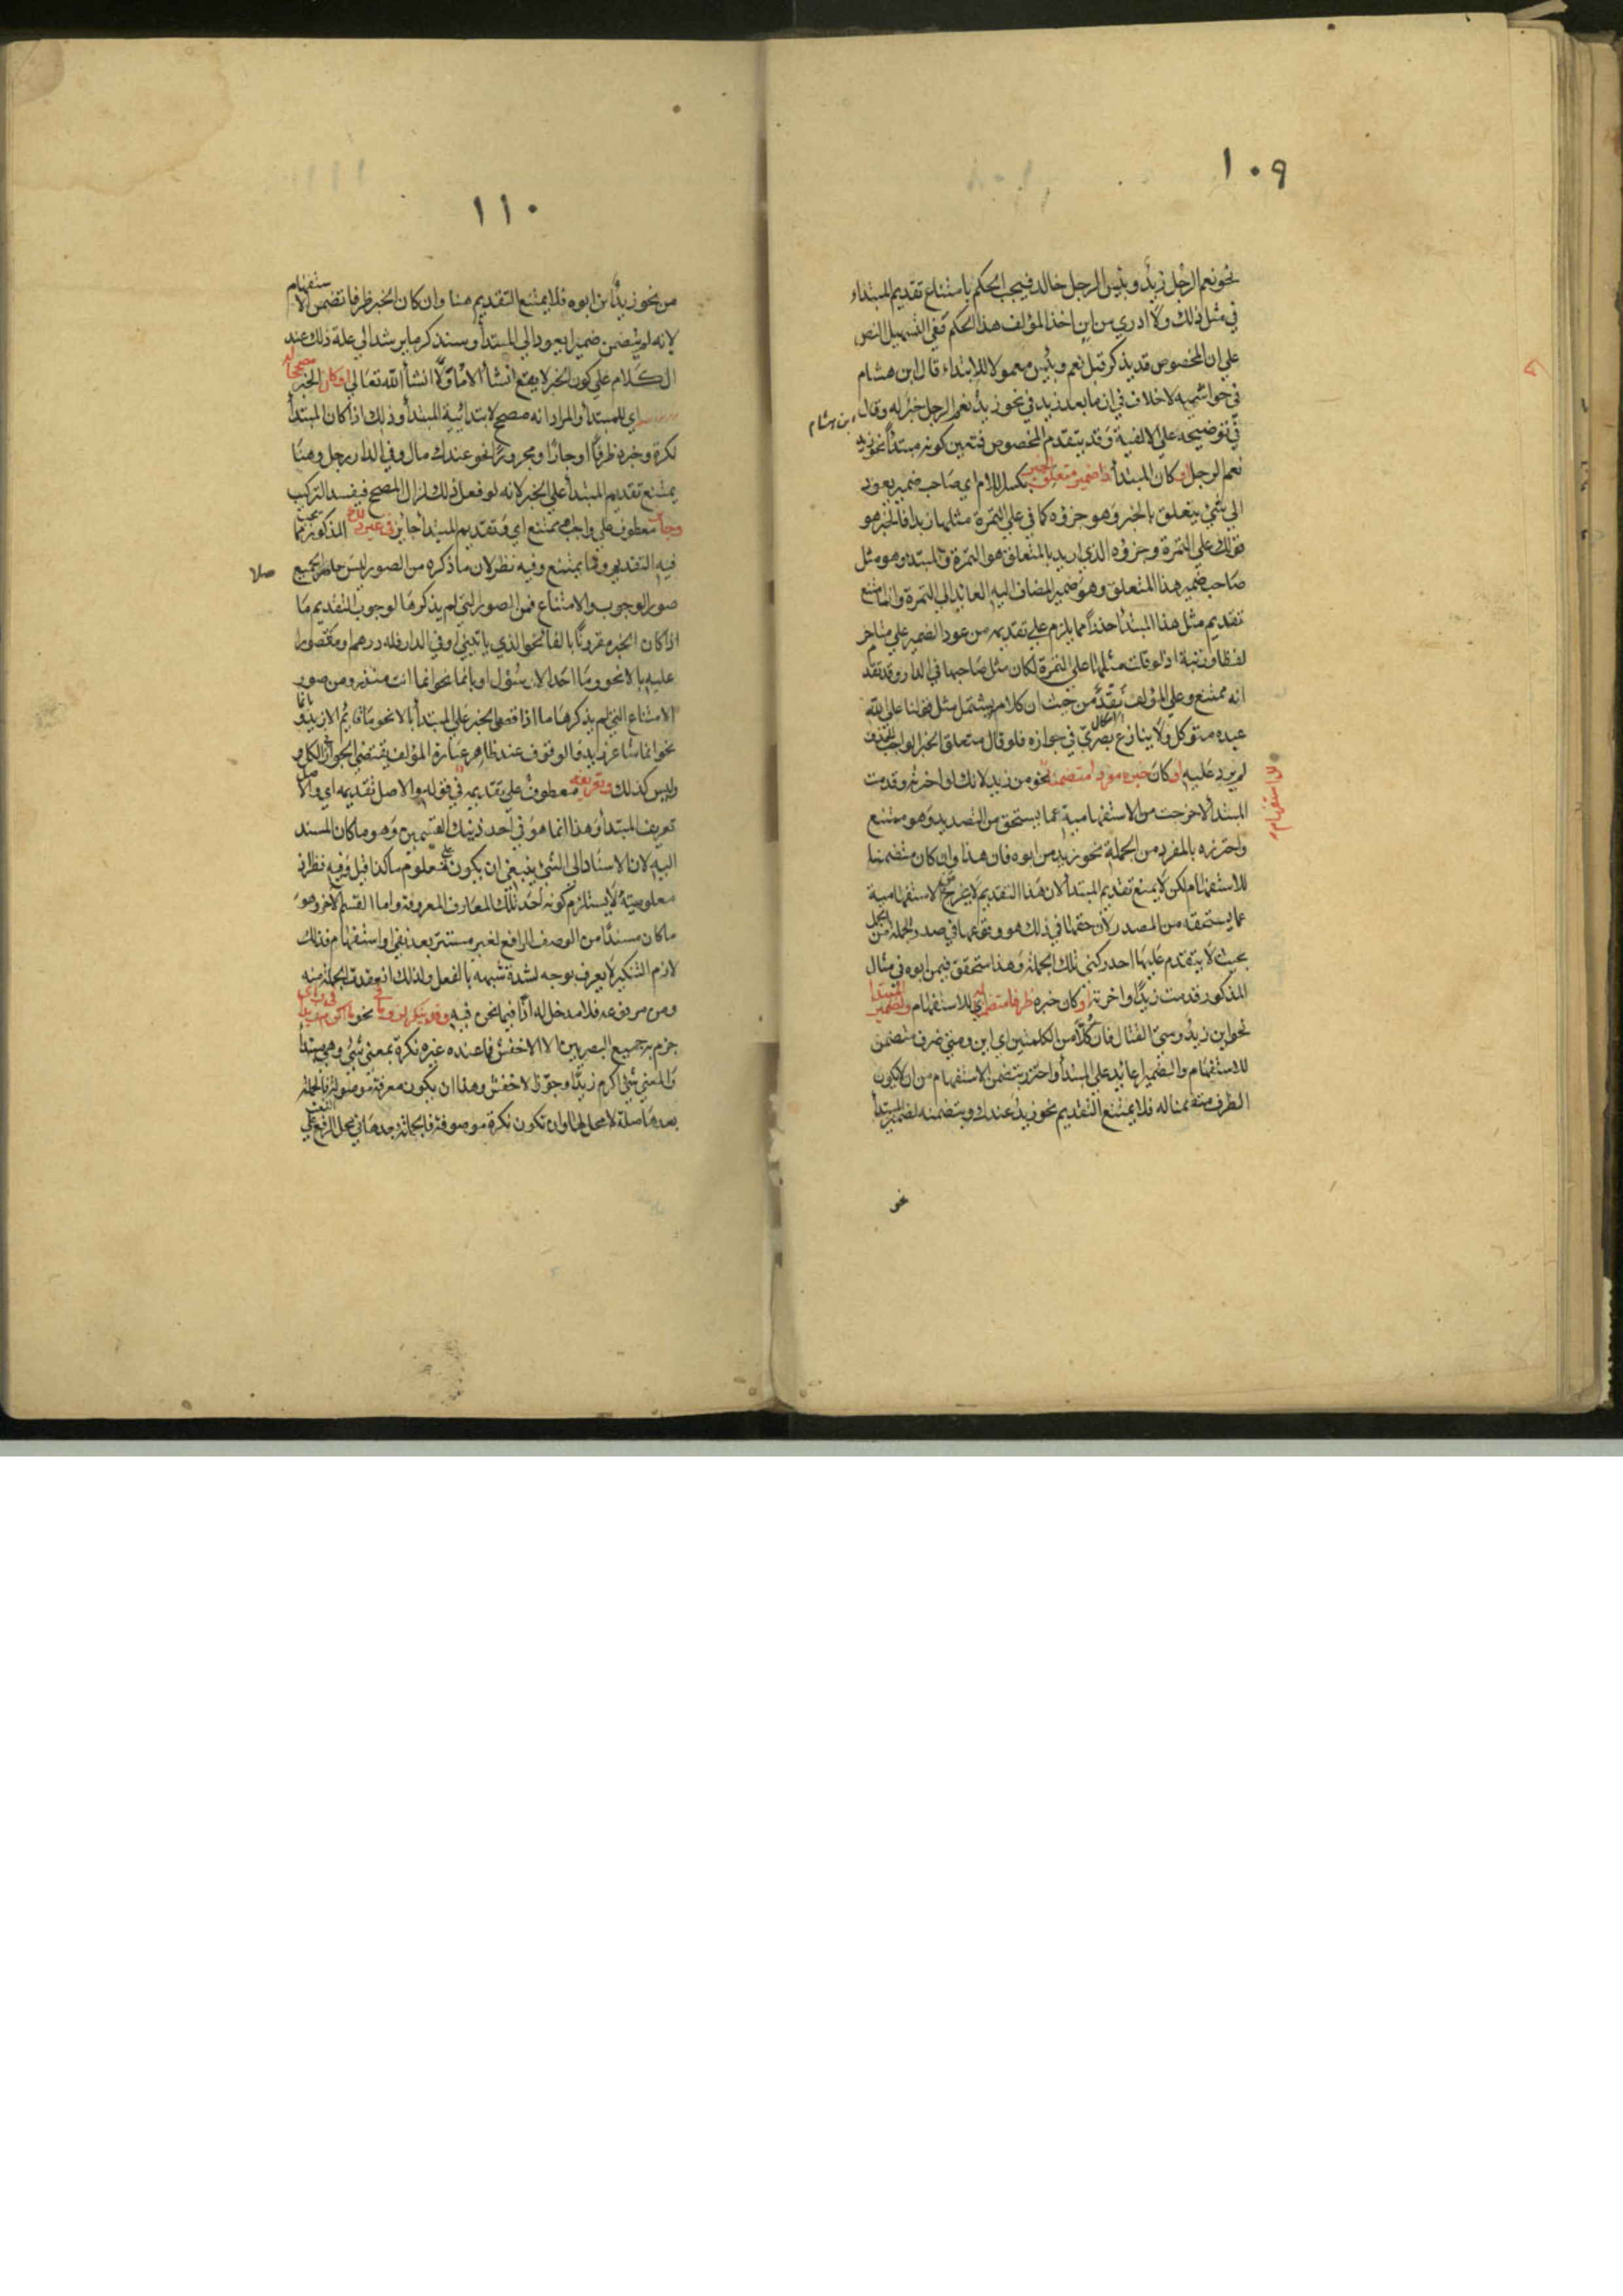 ١٠٩
نحو نعم الرجل زيدٌ وبئس الرجل خالد فيجب الحكم بامتناع تقديم المبتداء
في مثل ذلك ولا ادري من اين اخذ المؤلف هذا الحكم ففي التسهيل النص
علي ان المخصوص قد يذكر قبل نعم وبئس معمولا للابتداء قال ابن هشام
في حواشيه لا خلاف في ان ما بعد زيد في نحو زيد نعم الرجل خبر له وقال
ابن هشام
في توضيحه علي الالفية وقد يتقدم المخصوص فتعين كونه مبتدأ نحو زيد
نعم الرجل او كان المبتدأ ذا ضمير متعلق الخبر بكسر اللام اي صاحب ضمير يعود
الي شئ يتعلق بالخبر وهو جزؤه كما في علي التمرة مثلها زبدا فالخبر هو
قولك علي التمرة وجزؤه الذي اريد بالمتعلق هو التمرة والمبتدا وهو مثل
صاحب ضمير هذا المتعلق وهو ضمير المضاف اليه العائد الي التمرة وانما امتنع
تقديم مثل هذا المبتدا حذرا مما يلزم علي تقديمه من عود الضمير علي متاخر
لفظا ورتبة اذ لو قلت مثلها علي التمرة لكان مثل صاحبها في الدار وقد تقدم
انه ممتنع وعلي المؤلف نقد من حيث ان كلامه يشتمل مثل قولنا علي الله
عبده متوكل ولا ينازع بصري في جوازه فلو قال متعلق الخبر الواجب الحذف
لم يرد عليه او كان خبره مفردا متضمنا نحو من زيد لانك لو اخرته وقدمت
للاستفهام
المبتدأ لاخرجت من الاستفهامية عما يستحق من التصدير وهو ممتنع
واحترزه بالمفرد من الجملة نحو زيد من ابوه فان هذا وان كان متضمنا
للاستفهام لكن لا يمنع تقديم المبتدأ لان هذا التقديم لا يخرج الاستفهامية
عما يستحقه من المصدر لان حقها في ذلك هو وقوعها في صدر الجملة من
بحيث لا يتقدم عليها احد ركني تلك الجملة وهذا متحقق في من ابوه في مثال
المذكور قدمت زيدا او اخرته او كان خبره ظرفا متضمنا للاستفهام ولضمير المبتدا
نحو اين زيد ومتي القتال فان كلا من الكلمتين اي اين ومتي ظرف متضمن
للاستفهام والضمير عائد علي المبتدأ واحترز بتضمن الاستفهام من ان لا يكون
الظرف متضمنا له فلا يمتنع التقديم نحو زيد عندك وبتضمنه لضمير المبتدأ
من
١١٠
من نحو زيد اين ابوه فلا يمتنع التقديم هنا وان كان الخبر ظرفا تضمن الاستفهام
لانه لم يتضمن ضميرا يعود الي المبتدأ وسنذكر ما يرشد الي علة ذلك عند
الكلام علي كون الخبر لا يقع انشأ الا مأولا انشأ الله تعالي او كان الخبر مصححا له
اي للمبتدأ والمراد انه مصحح لابتدائية المبتدأ وذلك اذا كان المبتدأ
نكرة وخبره ظرفا او جارا ومجرورا نحو عندك مال وفي الدار رجل وهنا
يمتنع تقديم المبتدأ علي الخبر لانه لو فعل ذلك لزال المصحح فيفسد التركيب
وجاز معطوف علي واجب وممتنع اي وتقديم المبتدأ جايز في غير ذلك المذكور مما يجب
فيه التقديم ومما يمتنع وفيه نظر لان ما ذكره من الصور ليس حاصرا لجميع
صور الوجوب والامتناع فمن الصور التي لم يذكرها لوجوب التقديم ما
اذا كان الخبر مقرونا بالفا نحو الذي ياتيني او في الدار فله درهم او مقصورا
عليه بالا نحو وما محمد الا رسول او بانما نحو انما انت منذر ومن صور
الامتناع التي لم يذكرها ما اذا قصر الخبر علي المبتدأ بالا نحو ما قايم الا زيد او بانما
نحو انما شاعر زيد فالوقوف عند ظاهر عبارة المؤلف يقتضي الجواز في الكل
وليس كذلك وتعريفه معطوف علي تقديمه في قوله والاصل تقديمه اي والاصل
تعريف المبتدأ وهذا انما هو في احد ذينك القسمين وهو ما كان المسند
اليه لان الاسناد الي الشئ ينبغي ان يكون علي معلوم كذا قيل وفيه نظر اذ
معلوميته لا يستلزم كونه احد تلك المعارف المعروفة واما القسم الاخر وهو
ما كان مسندا من الوصف الرافع لغير مستتر بعد نفي او استفهام فذلك
لازم التنكير لا يعرف بوجه لشدة شبهه بالفعل ولذلك انعقدت الجملة منه
ومن مرفوعه فلا مدخل له اذا فيما نحن فيه وقد ينكر نحو ما اكرم زيدا في راي
جزم به جميع البصريين الا الاخفش فما عنده غيره نكرة بمعني شئ وهي مبتدأ
والمعني شئ اكرم زيدا وجوز الاخفش وهذا ان يكون معرفة موصولة فالجملة
بعدها صلة لا محل لها وان تكون نكرة موصوفة فالجملة بعدها في محل الرفع علي النعت